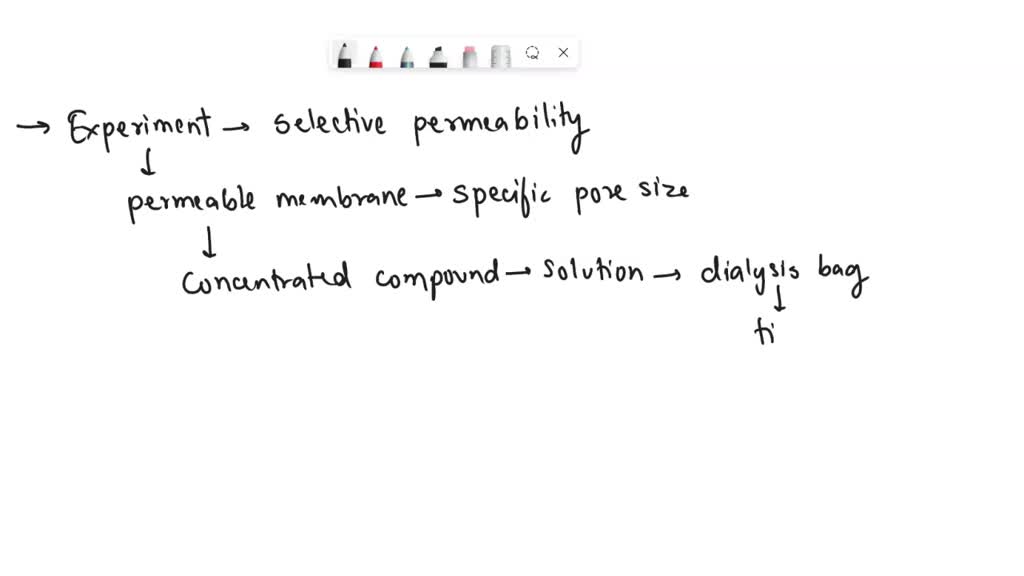 → Experiment → selective permeability
↓
permeable membrane → specific pore size
↓
Concentrated compound → solution → dialysis bag
↓
ti